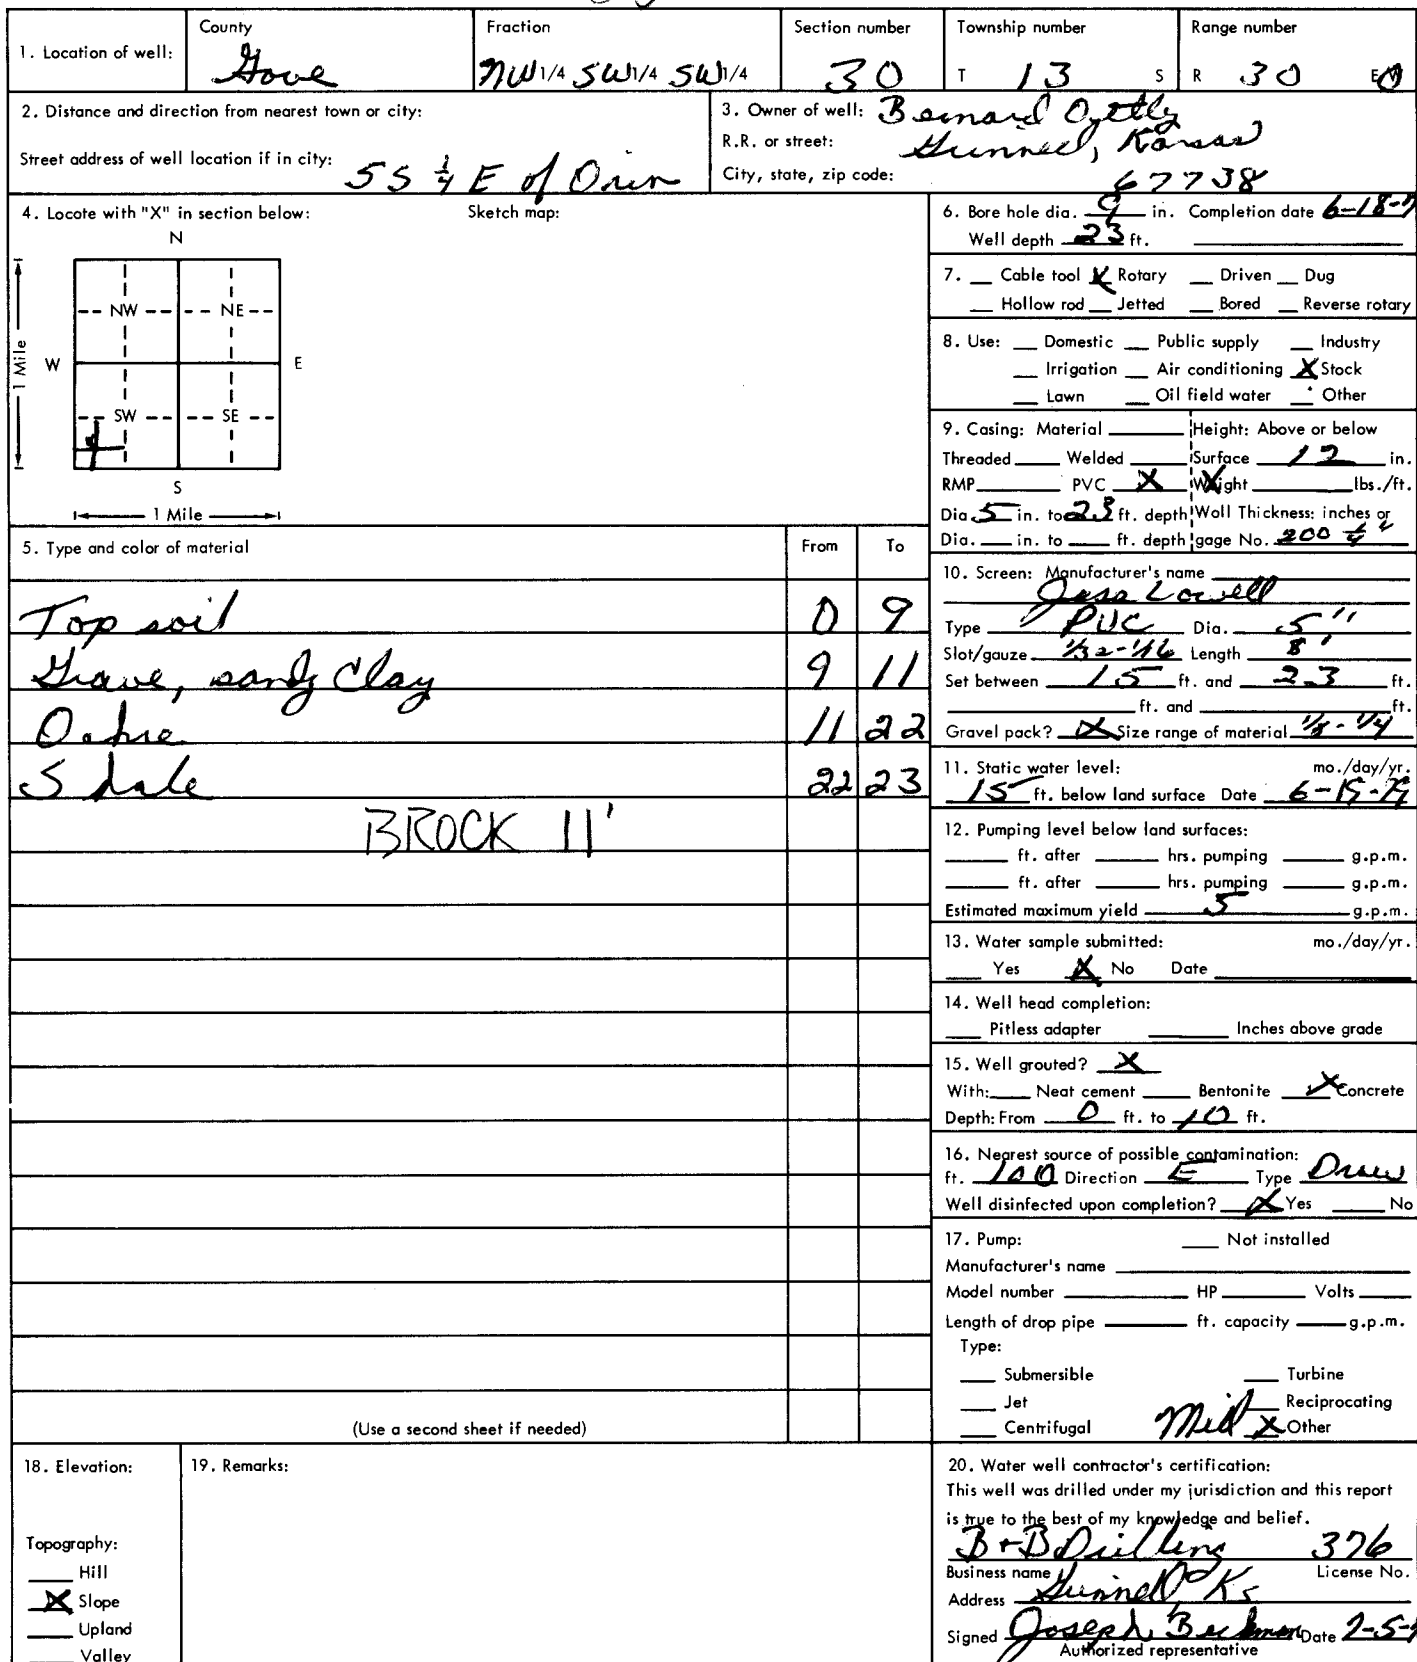 County Fraction Section number Township number Range number
1. Location of well: Gove NW 1/4 SW 1/4 SW 1/4 30 T 13 S R 30 E
2. Distance and direction from nearest town or city:
Street address of well location if in city: 5S 1/4 E of Orin
3. Owner of well: Bernard
R.R. or street: Grinnell, Kansas
City, state, zip code: 67738
4. Locote with "X" in section below: Sketch map:
N
NW NE
W E
1 Mile
SW SE
S
1 Mile
5. Type and color of material From To
Top soil 0 9
Grave, sandy Clay 9 11
Ochre 11 22
Shale 22 23
BROCK 11'
(Use a second sheet if needed)
6. Bore hole dia. 9 in. Completion date 6-18-7
Well depth 23 ft.
7. Cable tool X Rotary Driven Dug
Hollow rod Jetted Bored Reverse rotary
8. Use: Domestic Public supply Industry
Irrigation Air conditioning X Stock
Lawn Oil field water Other
9. Casing: Material Height: Above or below
Threaded Welded Surface 12 in.
RMP PVC X Weight lbs./ft.
Dia. 5 in. to 23 ft. depth Woll Thickness: inches or
Dia. in. to ft. depth gage No. 200 1/4"
10. Screen: Manufacturer's name
Jess Lowell
Type PVC Dia. 5"
Slot/gauze 1/32-1/16 Length 8'
Set between 15 ft. and 23 ft.
ft. and ft.
Gravel pack? X Size range of material 1/8-1/4
11. Static water level: mo./day/yr.
15 ft. below land surface Date 6-19-79
12. Pumping level below land surfaces:
ft. after hrs. pumping g.p.m.
ft. after hrs. pumping g.p.m.
Estimated maximum yield 5 g.p.m.
13. Water sample submitted: mo./day/yr.
Yes X No Date
14. Well head completion:
Pitless adapter Inches above grade
15. Well grouted? X
With: Neat cement Bentonite X Concrete
Depth: From 0 ft. to 10 ft.
16. Nearest source of possible contamination:
ft. 100 Direction E Type Draw
Well disinfected upon completion? X Yes No
17. Pump: Not installed
Manufacturer's name
Model number HP Volts
Length of drop pipe ft. capacity g.p.m.
Type:
Submersible Turbine
Jet Reciprocating
Centrifugal Mill X Other
18. Elevation:
Topography:
Hill
X Slope
Upland
Valley
19. Remarks:
20. Water well contractor's certification:
This well was drilled under my jurisdiction and this report
is true to the best of my knowledge and belief.
B+B Drilling 376
Business name License No.
Address Grinnell Ks
Signed Joseph Beckman Date 7-5-7
Authorized representative